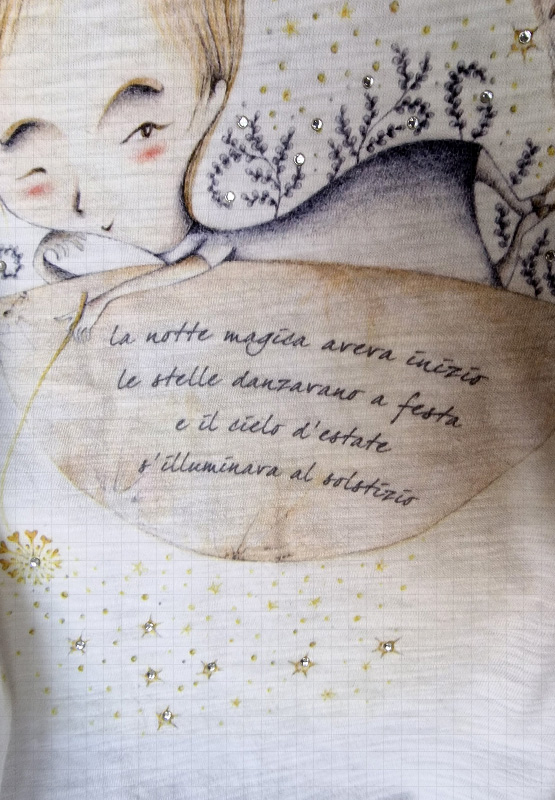 la notte magica aveva inizio
le stelle danzavano a festa
e il cielo d'estate
s'illuminava al solstizio